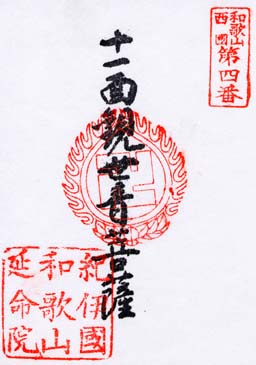 和歌山
西國
第四番
十一面観世音菩薩
紀伊國
和歌山
延命院